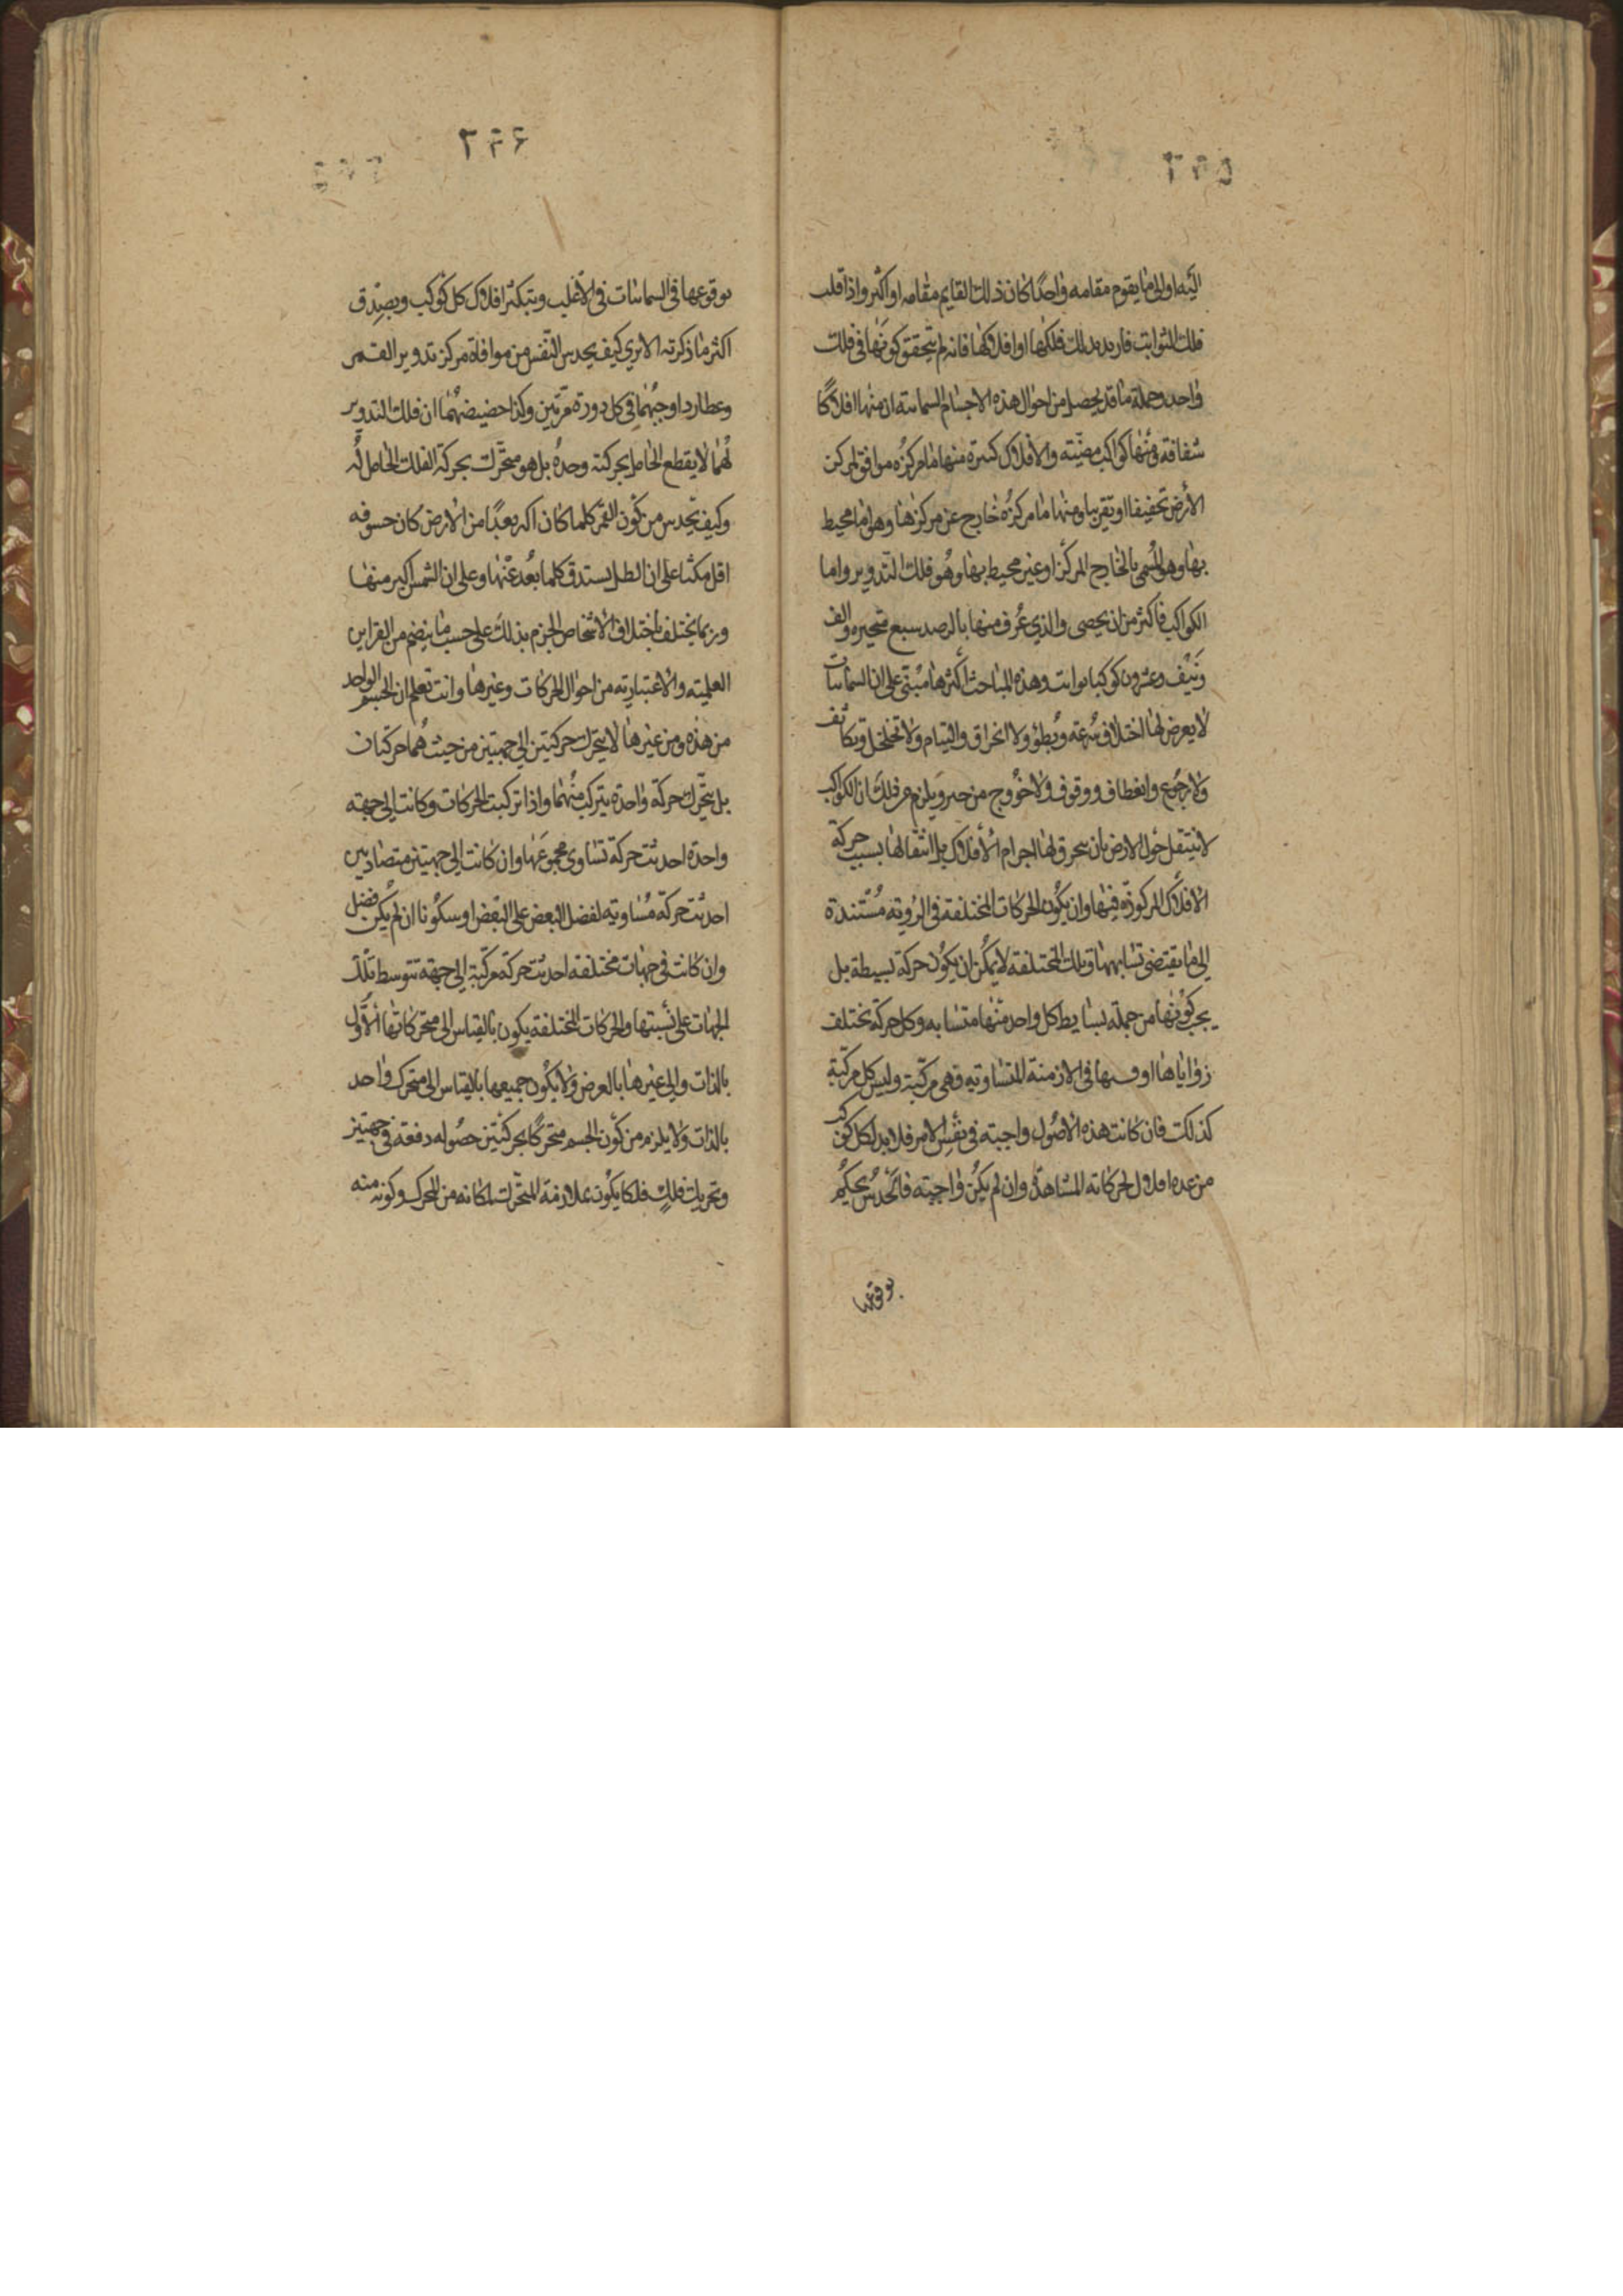 ٢٩٥
اليه او الى ما يقوم مقامه واحدًا كان ذلك القايم مقامه او اكثر واذا قلت
فلك الثوابت فاريد بذلك فلكها او افلاكها فانه لم يتحقق كونها في فلك
واحد وجملة ما قد يحصل من احوال هذه الاجسام السمائية ان منها افلاكًا
شفافة فيها كواكب مضيئة والافلاك كثيرة منها ما مركزه موافق لمركز
الأرض تحقيقا او تقريبا ومنها ما مركزه خارج عن مركزها وهو اما محيط
بها وهو المسمى بالخارج المركز او غير محيط بها وهو فلك التدوير واما
الكواكب فاكثر من ان يحصى والذي عرف منها بالرصد سبع متحيره والف
ونيف وعشرون كوكبا ثوابت وهذه المباحث أكثرها مبتنى على ان السمائيات
لا يعرض لها اختلاف سرعة وبطؤ ولا انخراق والتيام ولا تخلخل وتكاثف
ولا رجوع وانعطاف ووقوف ولا خروج من حيز ويلزم من ذلك ان الكواكب
لا تنتقل حول الارض بان ينخرق لها اجرام الأفلاك بل انتقالها بسبب حركة
الافلاك المركوزة فيها وان يكون الحركات المختلفة في الروية مستندة
الى ما يقتضى تشابهها وتلك المختلفة لا يمكن ان يكون حركة بسيطة بل
يجب كونها من جملة بسايط كل واحد منها متشابه وكل حركة تختلف
زواياها او قسيها في الازمنة المتساوية فهى مركبة وليس كل مركبة
كذلك فان كانت هذه الأصول واجبة في نفس الامر فلا بد لكل كوكب
من عدة افلاك لحركاته المشاهدة وان لم يكن واجبة فالحدس يحكم
بوقوعها
٢٩٦
بوقوعها في السمائيات في الأغلب وبتكثر افلاك كل كوكب وبصدق
اكثر ما ذكرته الا ترى كيف يحدس النفس من موافاة مركز تدوير القمر
وعطارد اوجيهما في كل دورة مرتين وكذا حضيضيهما ان فلك التدوير
لهما لا يقطع الحامل بحركته وحده بل هو متحرك بحركة الفلك الحامل له
وكيف تحدس من كون القمر كلما كان اكثر بعدًا من الارض كان خسوفه
اقل مكثا على ان الظل يستدق كلما بعد عنها وعلى ان الشمس اكبر منها
وربما يختلف باختلاف الاشخاص الجزم بذلك على حسب ما ينضم من القراين
العلمية والاعتبارية من احوال الحركات وغيرها وانت تعلم ان الجسم الواحد
من هذه ومن غيرها لا يتحرك حركتين الى جهتين من حيث هما حركتان
بل يتحرك حركة واحدة يتركب منهما واذا تركبت الحركات وكانت الى جهة
واحدة احدثت حركة تساوى مجموعها وان كانت الى جهتين متضادتين
احدثت حركة مساوية لفضل البعض على البعض او سكونا ان لم يكن فضل
وان كانت في جهات مختلفة احدثت حركة مركبة الى جهة تتوسط تلك
الجهات على نسبتها والحركات المختلفة يكون بالقياس الى متحركاتها الأول
بالذات والى غيرها بالعرض ولا يكون جميعها بالقياس الى متحرك واحد
بالذات ولا يلزم من كون الجسم متحركًا بحركتين حصوله دفعة في جهتين
وتحريك فلك فلكا يكون بملازمة المتحرك لمكانه من المحرك وكونه منه